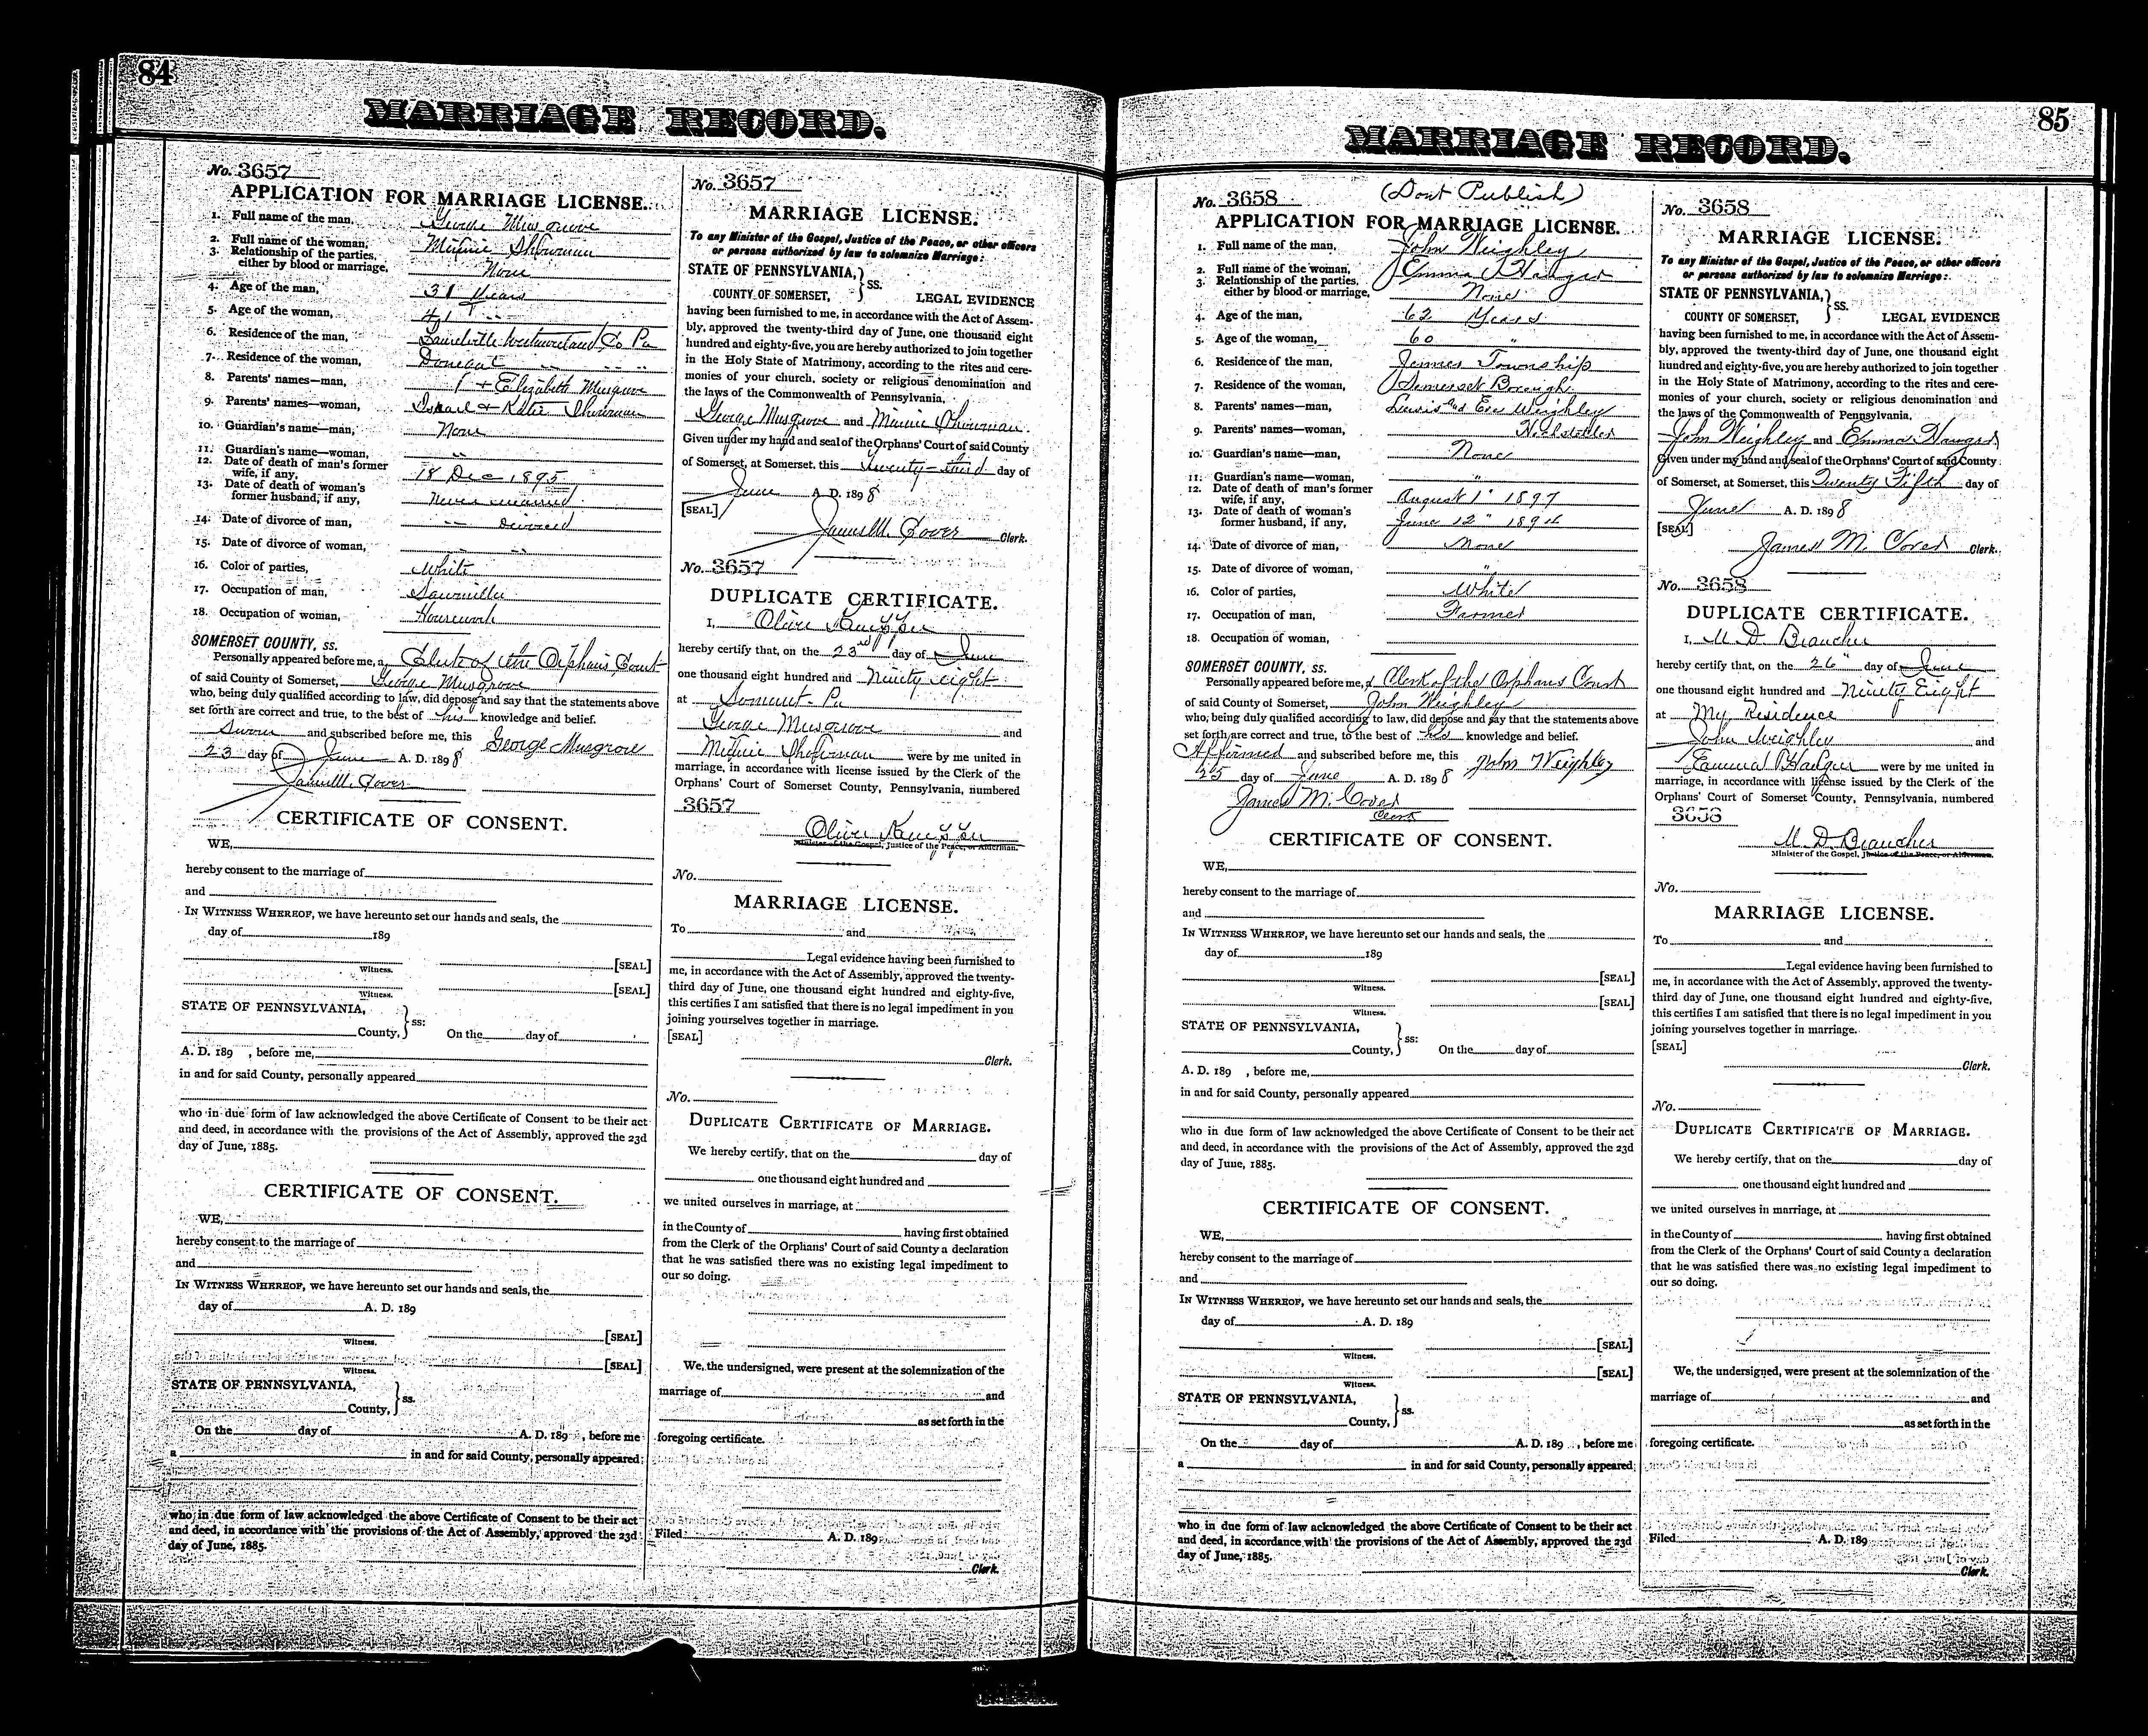 84
MARRIAGE RECORD.
No. 3657
APPLICATION FOR MARRIAGE LICENSE.
1. Full name of the man, George Musgrove
2. Full name of the woman, Minnie
3. Relationship of the parties,
either by blood or marriage, None
4. Age of the man, 31 Years
5. Age of the woman,
6. Residence of the man, Westmoreland Co Pa
7. Residence of the woman, Donegal " " "
8. Parents' names—man, + Elizabeth Musgrove
9. Parents' names—woman, Israel + Katie
10. Guardian's name—man, None
11. Guardian's name—woman, "
12. Date of death of man's former
wife, if any, 18 Dec 1895
13. Date of death of woman's
former husband, if any, Never married
14. Date of divorce of man, " divorced
15. Date of divorce of woman, " "
16. Color of parties, White
17. Occupation of man,
18. Occupation of woman, Housework
SOMERSET COUNTY, SS.
Personally appeared before me, a Clerk of the Orphans Court
of said County of Somerset, George Musgrove
who, being duly qualified according to law, did depose and say that the statements above
set forth are correct and true, to the best of his knowledge and belief.
Sworn and subscribed before me, this George Musgrove
23 day of June A. D. 1898
James M. Cover
CERTIFICATE OF CONSENT.
WE,
hereby consent to the marriage of
and
IN WITNESS WHEREOF, we have hereunto set our hands and seals, the
day of 189
[SEAL]
Witness.
[SEAL]
Witness.
STATE OF PENNSYLVANIA,
County, } ss: On the day of
A. D. 189 , before me,
in and for said County, personally appeared
who in due form of law acknowledged the above Certificate of Consent to be their act
and deed, in accordance with the provisions of the Act of Assembly, approved the 23d
day of June, 1885.
CERTIFICATE OF CONSENT.
WE,
hereby consent to the marriage of
and
IN WITNESS WHEREOF, we have hereunto set our hands and seals, the
day of A. D. 189
[SEAL]
Witness.
[SEAL]
Witness.
STATE OF PENNSYLVANIA,
County, } ss.
On the day of A. D. 189 , before me
a in and for said County, personally appeared
who in due form of law acknowledged the above Certificate of Consent to be their act
and deed, in accordance with the provisions of the Act of Assembly, approved the 23d
day of June, 1885.
No. 3657
MARRIAGE LICENSE.
To any Minister of the Gospel, Justice of the Peace, or other officers
or persons authorized by law to solemnize Marriage:
STATE OF PENNSYLVANIA, } SS.
COUNTY OF SOMERSET, LEGAL EVIDENCE
having been furnished to me, in accordance with the Act of Assem-
bly, approved the twenty-third day of June, one thousand eight
hundred and eighty-five, you are hereby authorized to join together
in the Holy State of Matrimony, according to the rites and cere-
monies of your church, society or religious denomination and
the laws of the Commonwealth of Pennsylvania,
George Musgrove and Minnie
Given under my hand and seal of the Orphans' Court of said County
of Somerset, at Somerset, this Twenty-third day of
June A. D. 1898
[SEAL]
James M. Cover Clerk.
No. 3657
DUPLICATE CERTIFICATE.
I, Oliver
hereby certify that, on the 23rd day of June
one thousand eight hundred and Ninety eight
at Somerset Pa
George Musgrove and
Minnie were by me united in
marriage, in accordance with license issued by the Clerk of the
Orphans' Court of Somerset County, Pennsylvania, numbered
3657
Oliver
Minister of the Gospel, Justice of the Peace, or Alderman.
No.
MARRIAGE LICENSE.
To and
Legal evidence having been furnished to
me, in accordance with the Act of Assembly, approved the twenty-
third day of June, one thousand eight hundred and eighty-five,
this certifies I am satisfied that there is no legal impediment in you
joining yourselves together in marriage.
[SEAL]
Clerk.
No.
DUPLICATE CERTIFICATE OF MARRIAGE.
We hereby certify, that on the day of
one thousand eight hundred and
we united ourselves in marriage, at
in the County of having first obtained
from the Clerk of the Orphans' Court of said County a declaration
that he was satisfied there was no existing legal impediment to
our so doing.
We, the undersigned, were present at the solemnization of the
marriage of and
as set forth in the
foregoing certificate.
Filed A. D. 189
Clerk.
85
MARRIAGE RECORD.
No. 3658 (Dont Publish)
APPLICATION FOR MARRIAGE LICENSE.
1. Full name of the man, John Weighley
2. Full name of the woman, Emma Hanger
3. Relationship of the parties,
either by blood or marriage, None
4. Age of the man, 62 Years
5. Age of the woman, 60 "
6. Residence of the man, Jenner Township
7. Residence of the woman, Somerset Borough
8. Parents' names—man, Lewis and Eve Weighley
9. Parents' names—woman,
10. Guardian's name—man, None
11. Guardian's name—woman, "
12. Date of death of man's former
wife, if any, August 1" 1897
13. Date of death of woman's
former husband, if any, June 12"
14. Date of divorce of man, None
15. Date of divorce of woman, "
16. Color of parties, White
17. Occupation of man, Farmer
18. Occupation of woman,
SOMERSET COUNTY, SS.
Personally appeared before me, a Clerk of the Orphans Court
of said County of Somerset, John Weighley
who, being duly qualified according to law, did depose and say that the statements above
set forth are correct and true, to the best of his knowledge and belief.
Affirmed and subscribed before me, this John Weighley
25 day of June A. D. 1898
James M. Cover
Clerk
CERTIFICATE OF CONSENT.
WE,
hereby consent to the marriage of
and
IN WITNESS WHEREOF, we have hereunto set our hands and seals, the
day of 189
[SEAL]
Witness.
[SEAL]
Witness.
STATE OF PENNSYLVANIA,
County, } ss: On the day of
A. D. 189 , before me,
in and for said County, personally appeared
who in due form of law acknowledged the above Certificate of Consent to be their act
and deed, in accordance with the provisions of the Act of Assembly, approved the 23d
day of June, 1885.
CERTIFICATE OF CONSENT.
WE,
hereby consent to the marriage of
and
IN WITNESS WHEREOF, we have hereunto set our hands and seals, the
day of A. D. 189
[SEAL]
Witness.
[SEAL]
Witness.
STATE OF PENNSYLVANIA,
County, } ss.
On the day of A. D. 189 , before me
a in and for said County, personally appeared
who in due form of law acknowledged the above Certificate of Consent to be their act
and deed, in accordance with the provisions of the Act of Assembly, approved the 23d
day of June, 1885.
No. 3658
MARRIAGE LICENSE.
To any Minister of the Gospel, Justice of the Peace, or other officers
or persons authorized by law to solemnize Marriage:
STATE OF PENNSYLVANIA, } SS.
COUNTY OF SOMERSET, LEGAL EVIDENCE
having been furnished to me, in accordance with the Act of Assem-
bly, approved the twenty-third day of June, one thousand eight
hundred and eighty-five, you are hereby authorized to join together
in the Holy State of Matrimony, according to the rites and cere-
monies of your church, society or religious denomination and
the laws of the Commonwealth of Pennsylvania,
John Weighley and Emma Hanger
Given under my hand and seal of the Orphans' Court of said County
of Somerset, at Somerset, this Twenty Fifth day of
June A. D. 1898
[SEAL]
James M. Cover Clerk.
No. 3658
DUPLICATE CERTIFICATE.
I, M D Braucher
hereby certify that, on the 26" day of June
one thousand eight hundred and Ninety Eight
at My Residence
John Weighley and
Emma Hanger were by me united in
marriage, in accordance with license issued by the Clerk of the
Orphans' Court of Somerset County, Pennsylvania, numbered
3658
M. D. Braucher
Minister of the Gospel, Justice of the Peace, or Alderman.
No.
MARRIAGE LICENSE.
To and
Legal evidence having been furnished to
me, in accordance with the Act of Assembly, approved the twenty-
third day of June, one thousand eight hundred and eighty-five,
this certifies I am satisfied that there is no legal impediment in you
joining yourselves together in marriage.
[SEAL]
Clerk.
No.
DUPLICATE CERTIFICATE OF MARRIAGE.
We hereby certify, that on the day of
one thousand eight hundred and
we united ourselves in marriage, at
in the County of having first obtained
from the Clerk of the Orphans' Court of said County a declaration
that he was satisfied there was no existing legal impediment to
our so doing.
We, the undersigned, were present at the solemnization of the
marriage of and
as set forth in the
foregoing certificate.
Filed A. D. 189
Clerk.